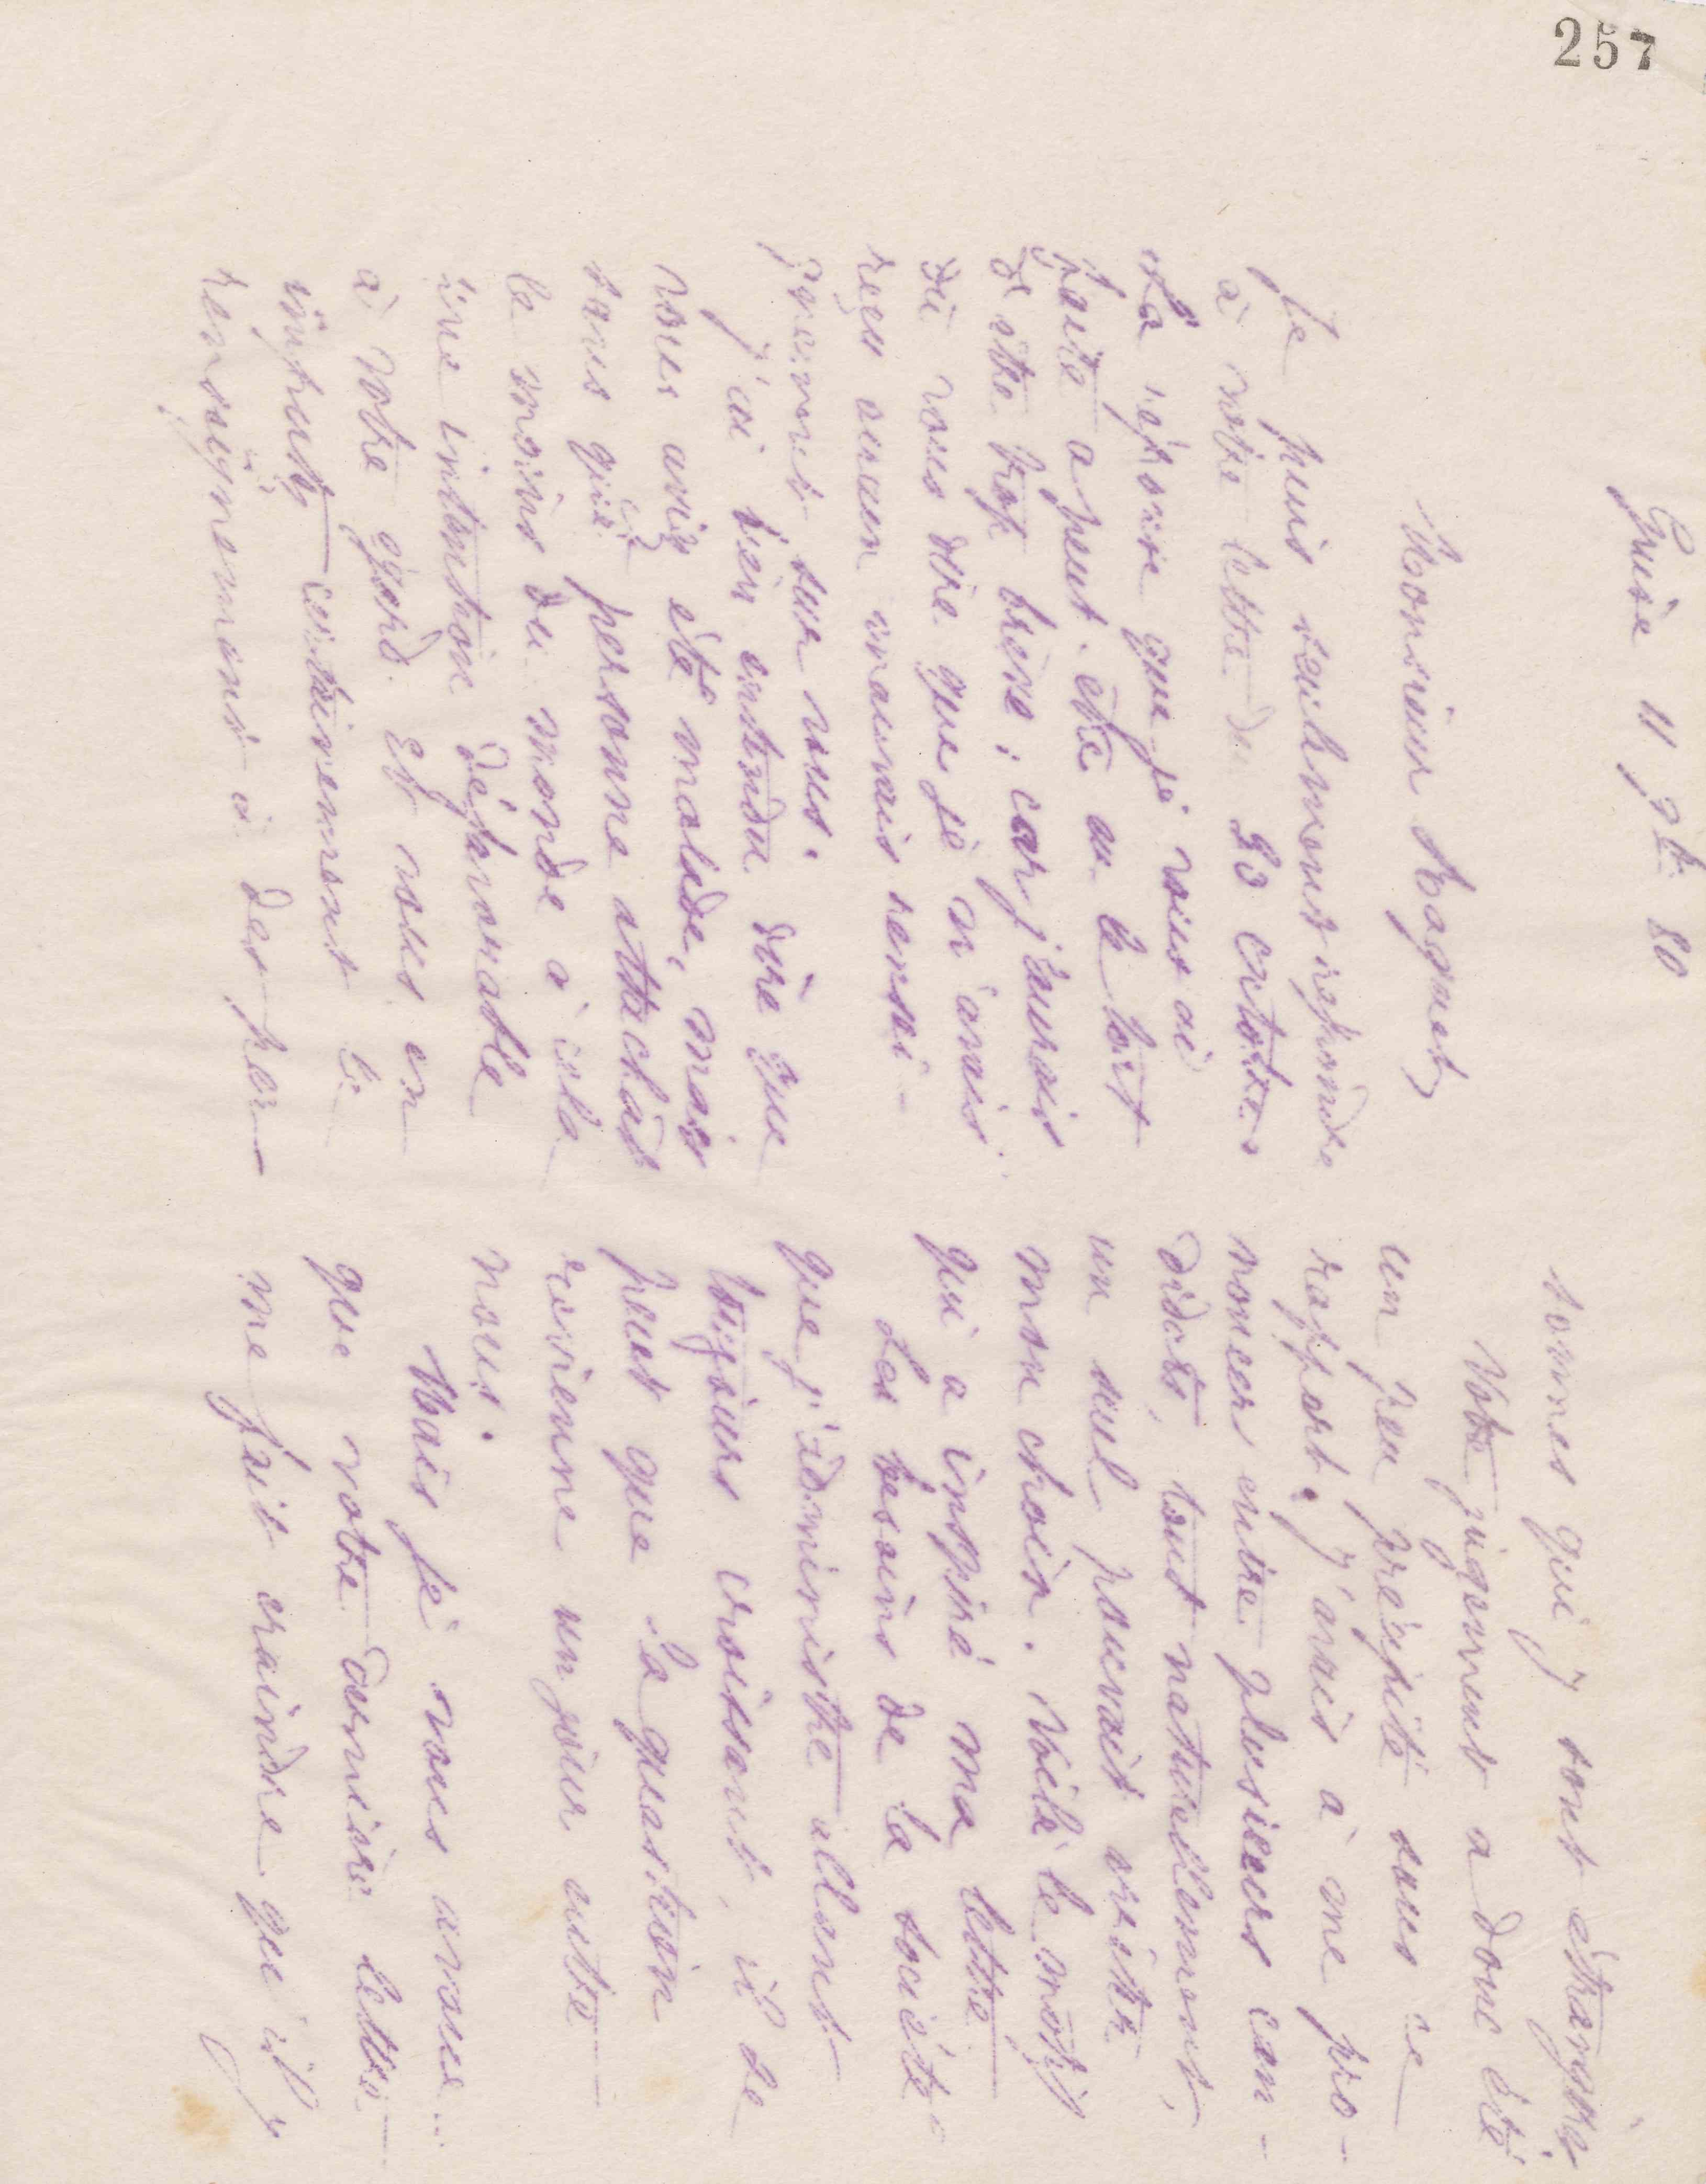 257
Guise 11 9bre 80
Monsieur Magnet,
Je puis seulement répondre
à votre lettre du 23 octobre.
La réponse que je vous ai
faite a peut-être eu le tort
d'être trop brève ; car j'aurais
dû vous dire que je n'avais
reçu aucun mauvais rensei-
gnement sur vous.
J'ai bien entendu dire que
vous aviez été malade, mais
sans que personne attachât
le moins du monde à cela
une intention défavorable
à votre égard. Et vous en
imputez certainement le
renseignement à des per-
sonnes qui y sont étrangères
Votre jugement a donc été
un peu précipité sous ce
rapport. J'avais à me pro-
noncer entre plusieurs can-
didats, tout naturellement,
un seul pouvait mériter
mon choix. Voilà le motif
qui a inspiré ma lettre
Les besoins de la société
que j'administre allant
toujours croissant, il se
peut que la question
revienne un jour entre
nous.
Mais je vous avoue
que votre dernière lettre
me fait craindre qu'il y